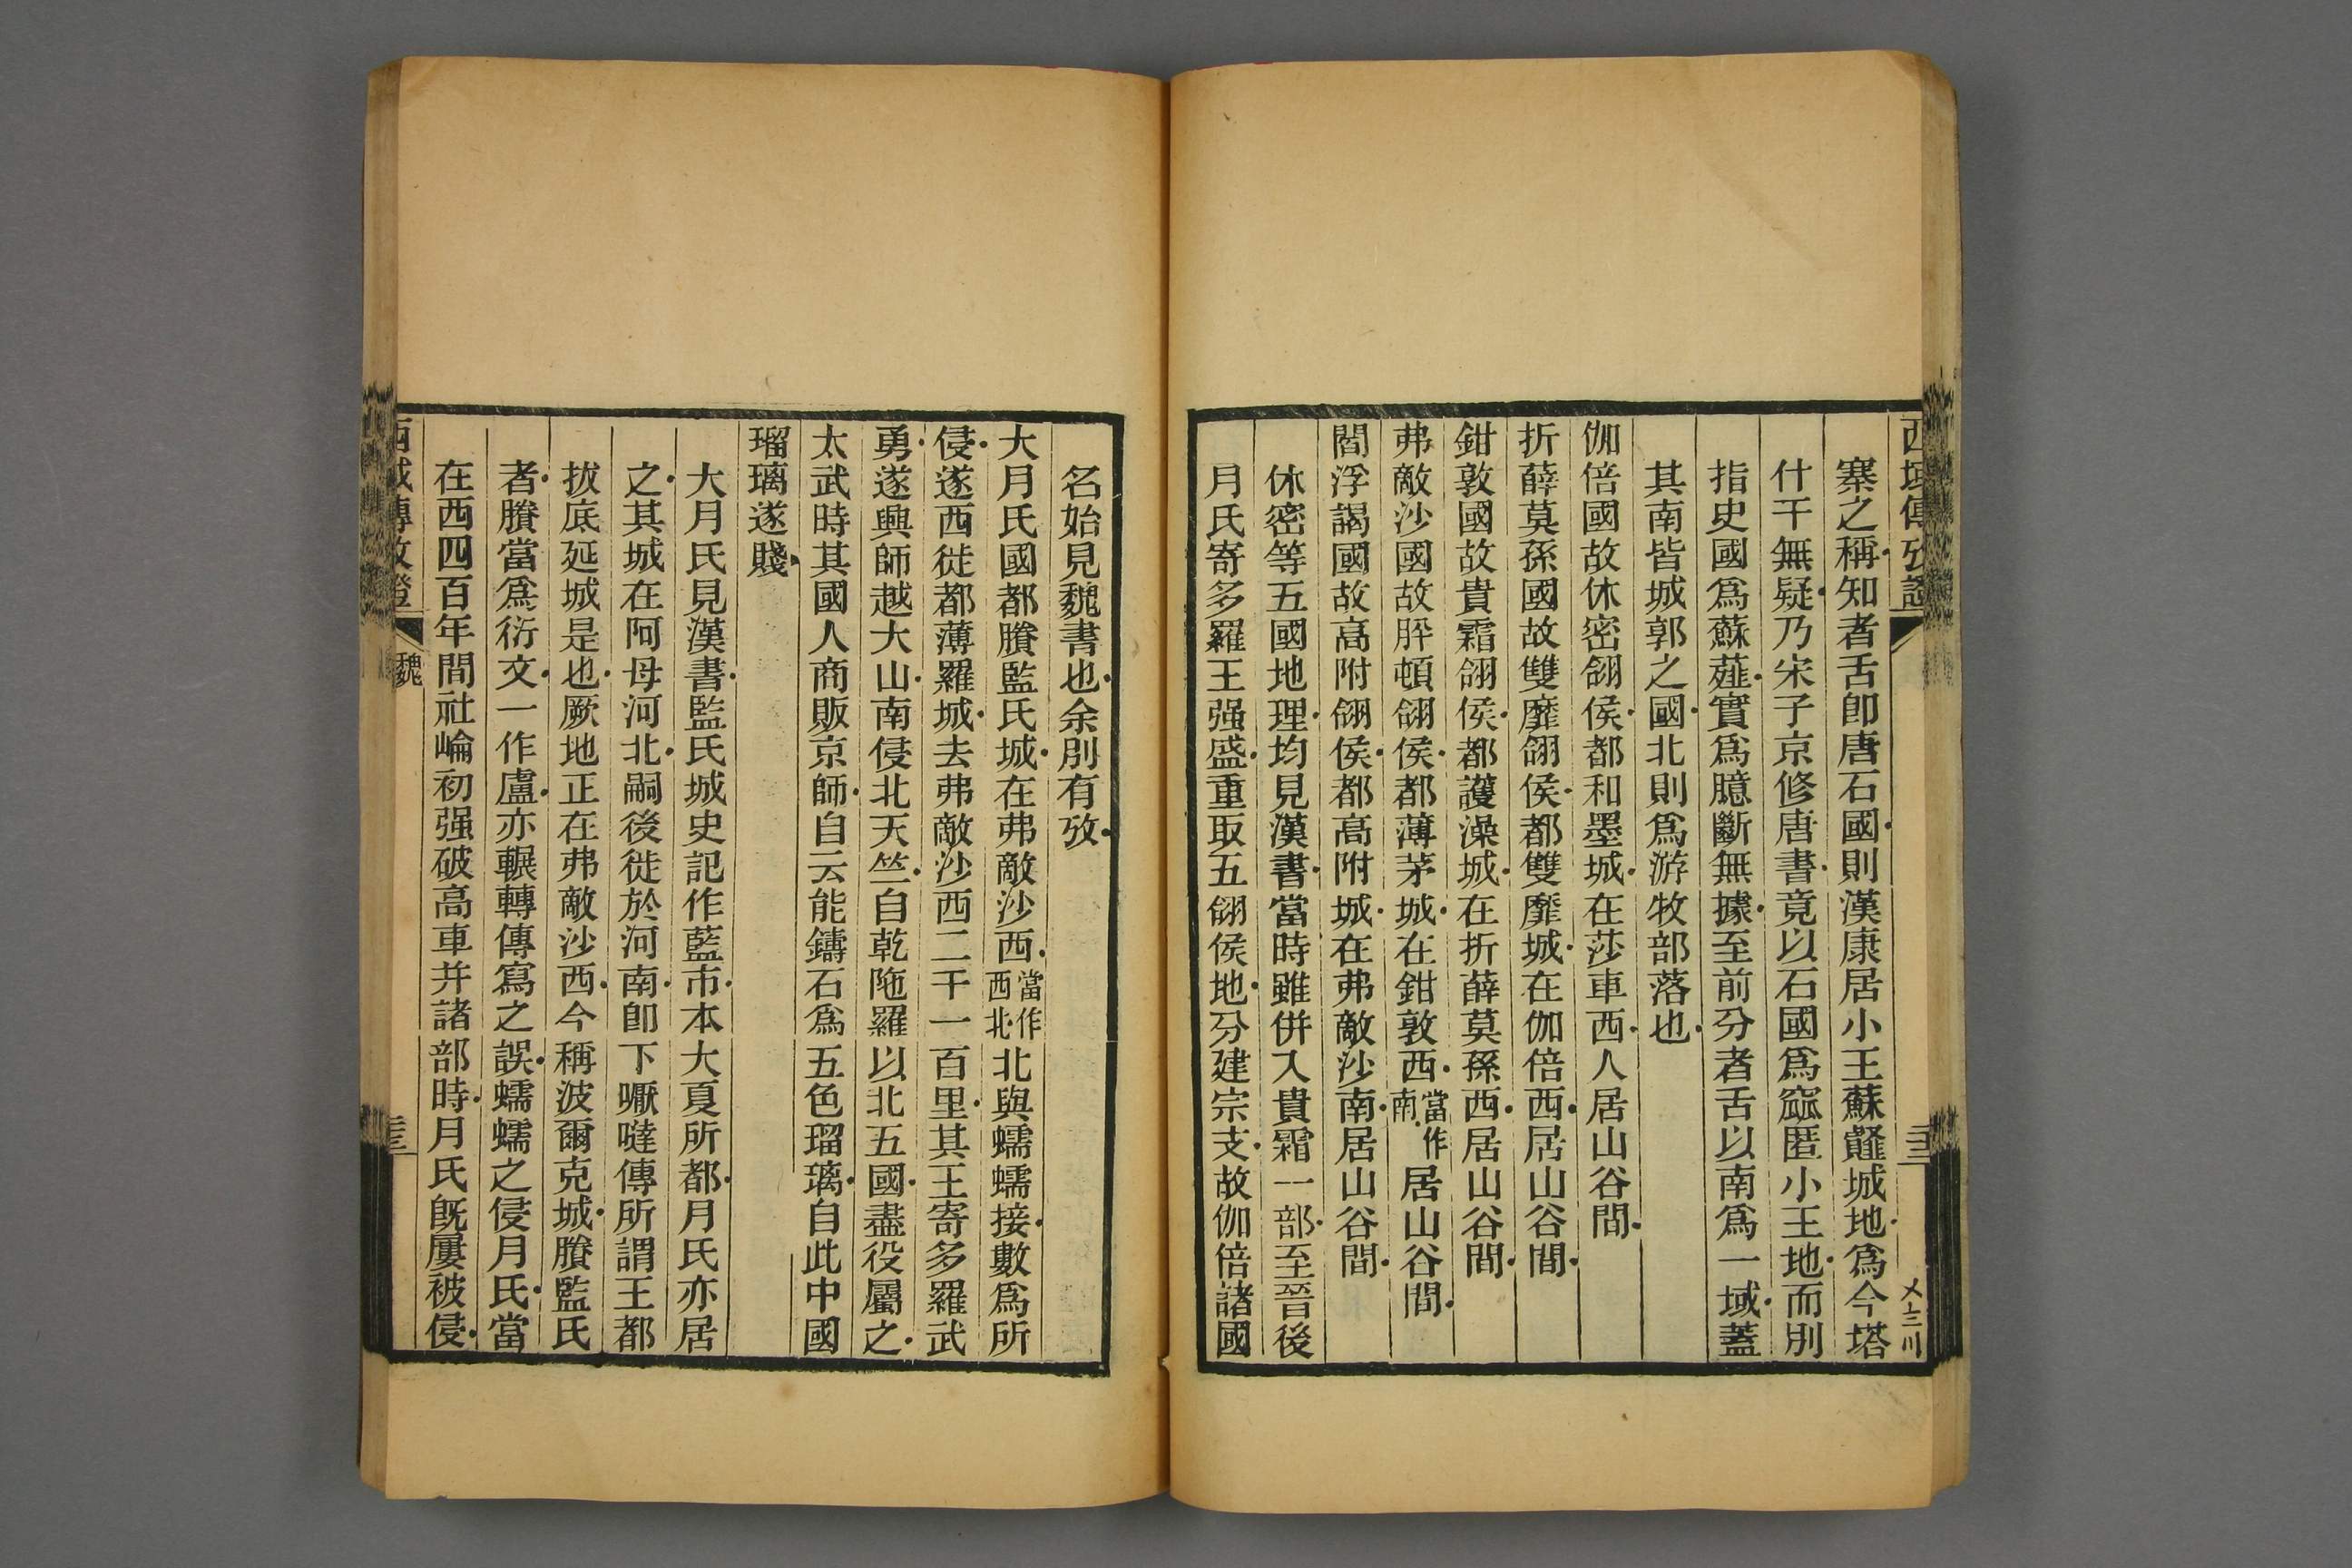 西域傳攷證
寨之稱知者舌卽唐石國則漢康居小王蘇䪥城地爲今塔
什干無疑乃宋子京修唐書竟以石國爲窳匿小王地而別
指史國爲蘇薤實爲臆斷無據至前分者舌以南爲一域蓋
其南皆城郭之國北則爲游牧部落也
伽倍國故休密翖侯都和墨城在莎車西人居山谷間
折薛莫孫國故雙靡翖侯都雙靡城在伽倍西居山谷間
鉗敦國故貴霜翖侯都護澡城在折薛莫孫西居山谷間
弗敵沙國故肸頓翖侯都薄茅城在鉗敦西當作南居山谷間
閻浮謁國故高附翖侯都高附城在弗敵沙南居山谷間
休密等五國地理均見漢書當時雖併入貴霜一部至晉後
月氏寄多羅王强盛重取五翖侯地分建宗支故伽倍諸國
名始見魏書也余別有攷
大月氏國都賸監氏城在弗敵沙西當作西北北與蠕蠕接數爲所
侵遂西徙都薄羅城去弗敵沙西二千一百里其王寄多羅武
勇遂興師越大山南侵北天竺自乾陁羅以北五國盡役屬之
太武時其國人商販京師自云能鑄石爲五色瑠璃自此中國
瑠璃遂賤
大月氏見漢書監氏城史記作藍市本大夏所都月氏亦居
之其城在阿母河北嗣後徙於河南卽下嚈噠傳所謂王都
拔底延城是也厥地正在弗敵沙西今稱波爾克城賸監氏
者賸當爲衍文一作盧亦輾轉傳寫之誤蠕蠕之侵月氏當
在西四百年間社崘初强破高車并諸部時月氏旣屢被侵
西域傳攷證
魏